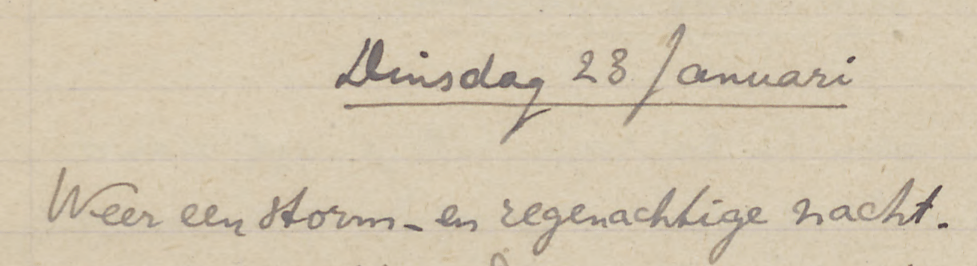 Dinsdag 23 Januari
Weer een storm- en regenachtige nacht.